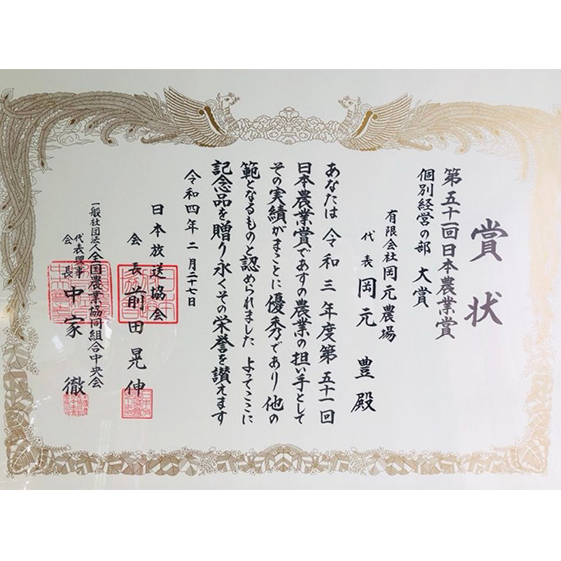 賞状
第五十一回日本農業賞
個別経営の部 大賞
有限会社岡元農場
代表 岡元 豊 殿
あなたは令和三年度第五十一回
日本農業賞であすの農業の担い手として
その実績がまことに優秀であり他の
範となるものと認められました よってここに
記念品を贈り永くその栄誉を讃えます
令和四年二月二十七日
日本放送協会
会長 前田晃伸
一般社団法人全国農業協同組合中央会
代表理事
会長 中家 徹